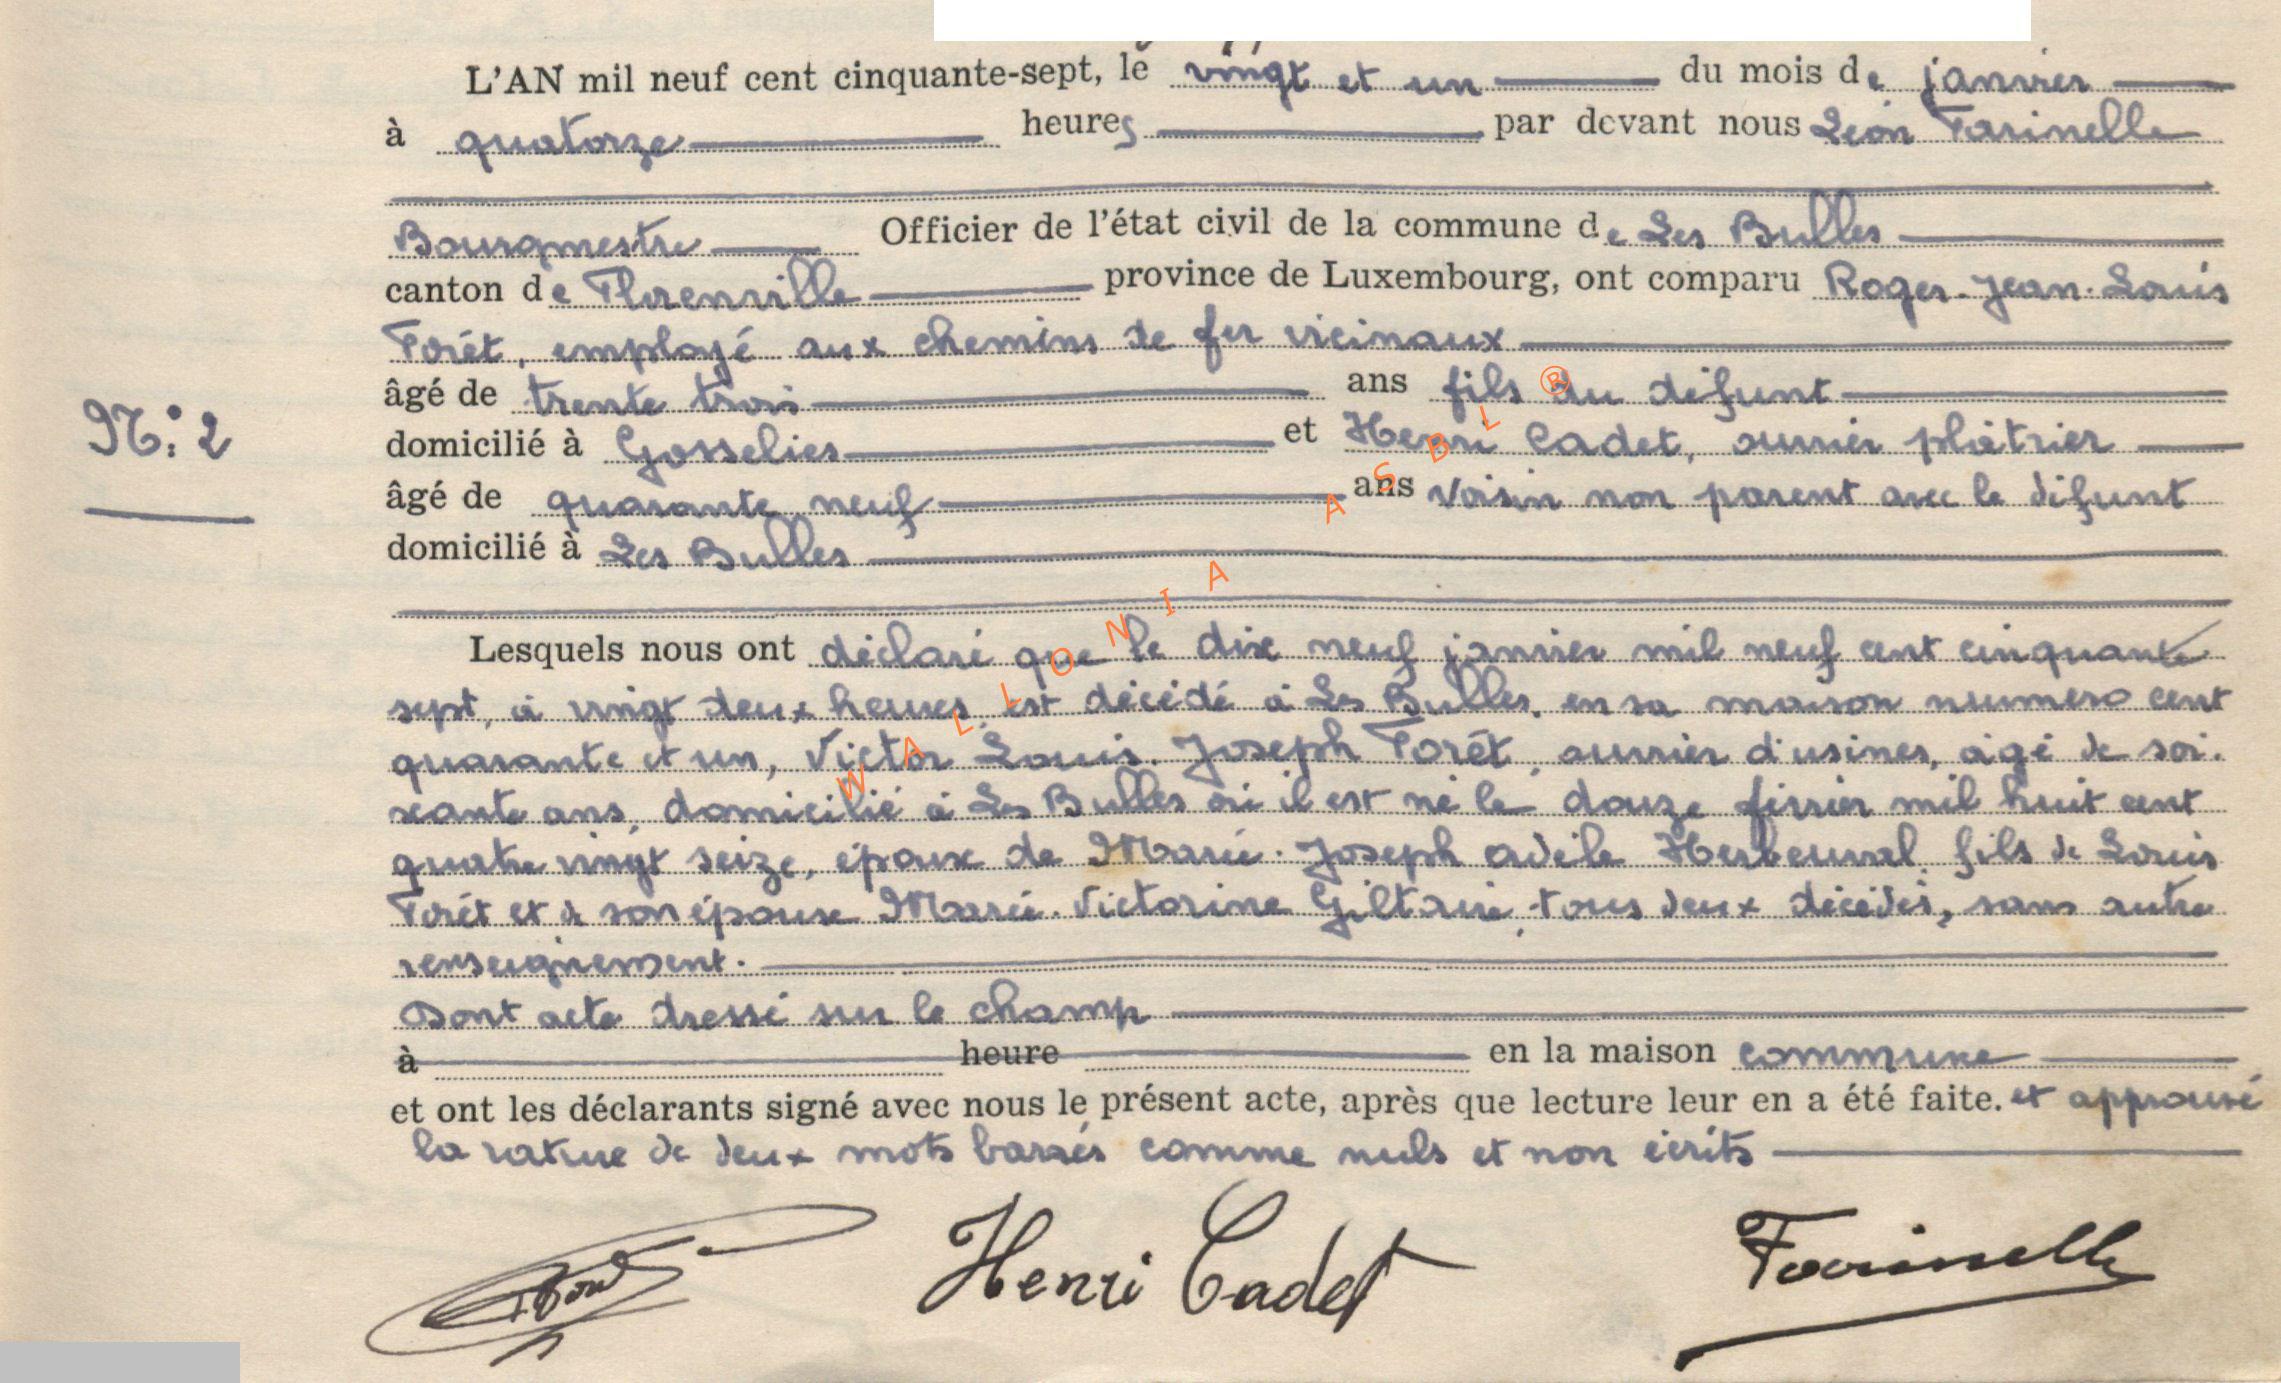 L'AN mil neuf cent cinquante-sept, le vingt et un du mois de janvier
à quatorze heures par devant nous Léon Farinelle
Bourgmestre Officier de l'état civil de la commune de Les Bulles
canton de Florenville province de Luxembourg, ont comparu Roger-Jean-Louis
Forêt, employé aux chemins de fer vicinaux
âgé de trente trois ans fils du défunt
domicilié à Gosselies et Henri Cadet, ouvrier plâtrier
N° 2
âgé de quarante neuf ans voisin non parent avec le défunt
domicilié à Les Bulles
Lesquels nous ont déclaré que le dix neuf janvier mil neuf cent cinquante
sept, à vingt deux heures, est décédé à Les Bulles, en sa maison numéro cent
quarante et un, Victor Louis-Joseph Forêt, ouvrier d'usines, âgé de soi-
xante ans, domicilié à Les Bulles où il est né le douze février mil huit cent
quatre vingt seize, époux de Marie-Joseph Adèle Herbeuval, fils de Louis
Forêt et de son épouse Marie-Victorine Giltaire, tous deux décédés, sans autre
renseignement.
Dont acte dressé sur le champ
à heure en la maison commune
et ont les déclarants signé avec nous le présent acte, après que lecture leur en a été faite. et approuvé
la rature de deux mots barrés comme nuls et non écrits
Henri Cadet Farinelle
WALLONIA ASBL ®